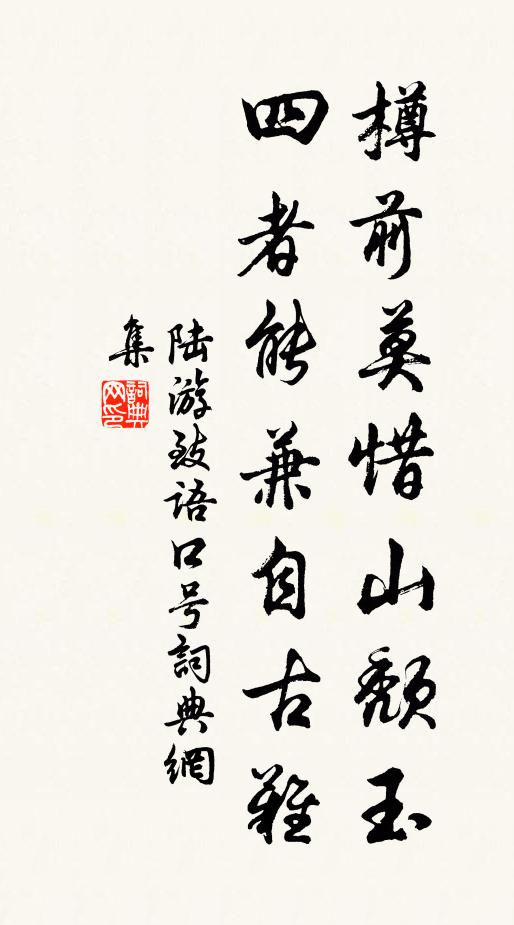 樽前莫惜山頹玉
四者能兼自古難
陆游致语口号詞典網
集
詞典网印